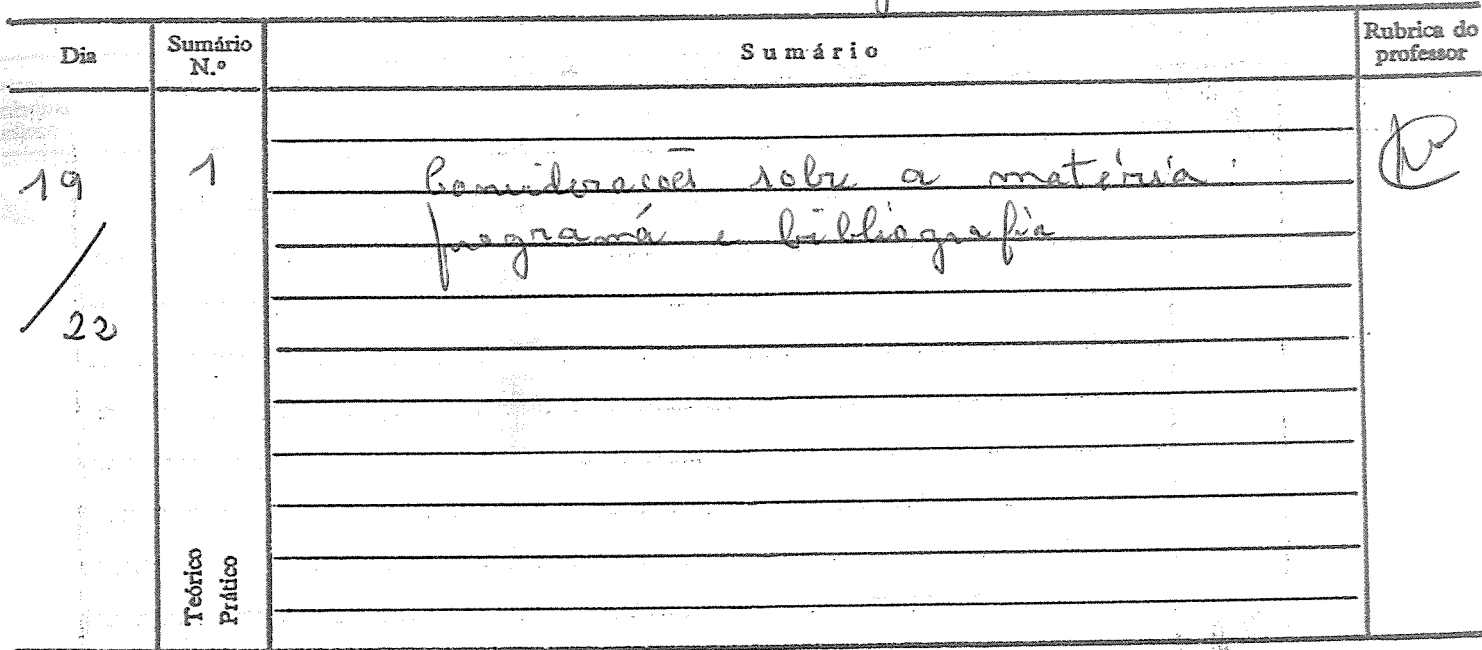 Dia Sumário N.º Sumário Rubrica do professor
19/22 1 Considerações sobre a matéria:
programa e bibliografia
Teórico
Prático